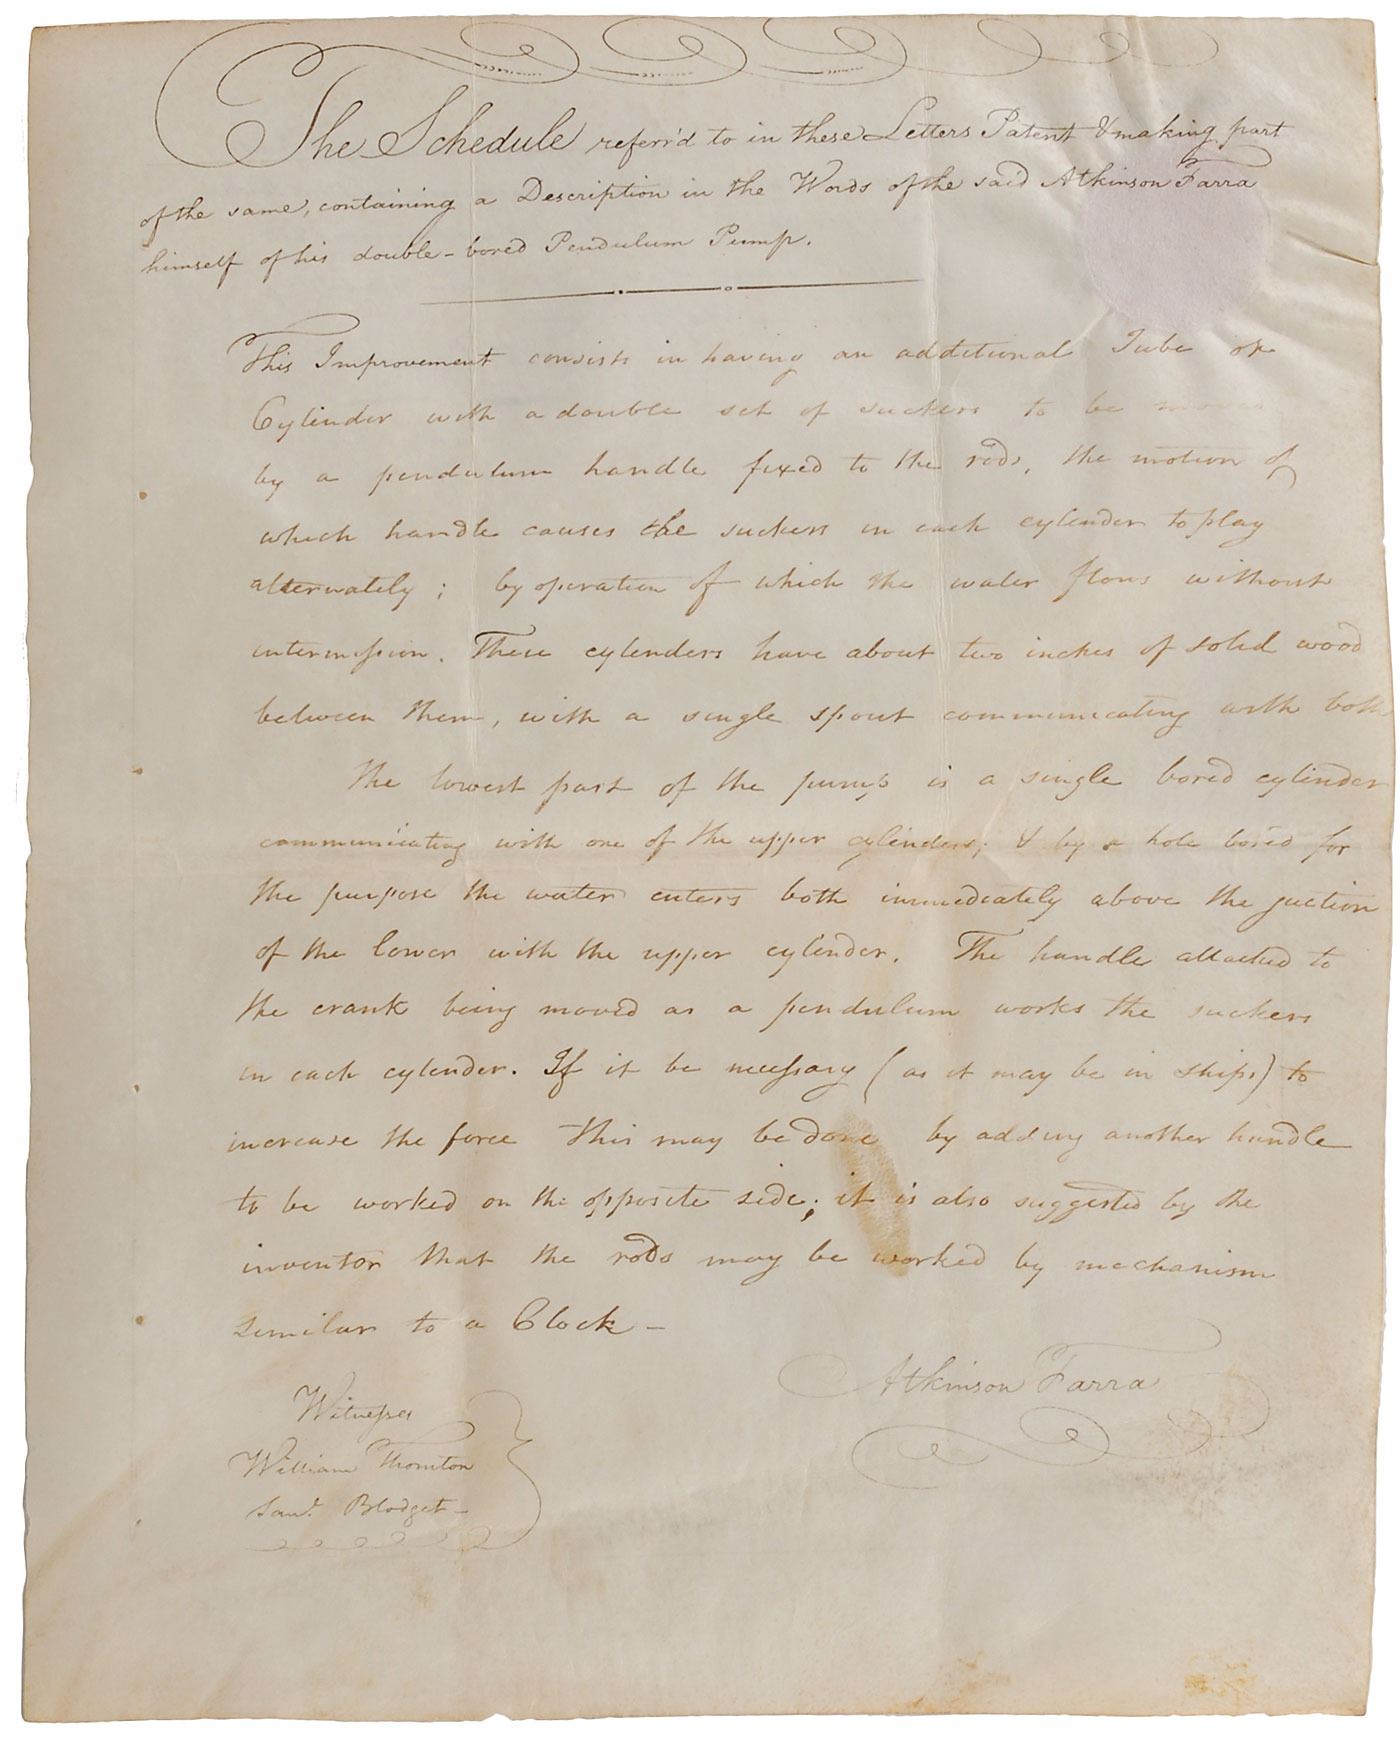 The Schedule referr'd to in these Letters Patent & making part
of the same, containing a Description in the Words of the said Atkinson Farra
himself of his double-bored Pendulum Pump.
This Improvement consists in having an additional Tube or
Cylinder with a double set of suckers to be moved
by a pendulum handle fixed to the rods, the motion of
which handle causes the suckers in each cylender to play
alternately; by operation of which the water flows without
intermission. These cylenders have about two inches of solid wood
between them, with a single spout communicating with both
The lowest part of the pump is a single bored cylinder
communicating with one of the upper cylinders; & by a hole bored for
the purpose the water enters both immediately above the juction
of the lower with the upper cylinder. The handle attached to
the crank being moved as a pendulum works the suckers
in each cylender. If it be necessary (as it may be in ships) to
increase the force this may be done by adding another handle
to be worked on the opposite side; it is also suggested by the
inventor that the rods may be worked by mechanism
similar to a Clock —
Atkinson Farra
Witnesses
William Thornton
Saml. Blodget —